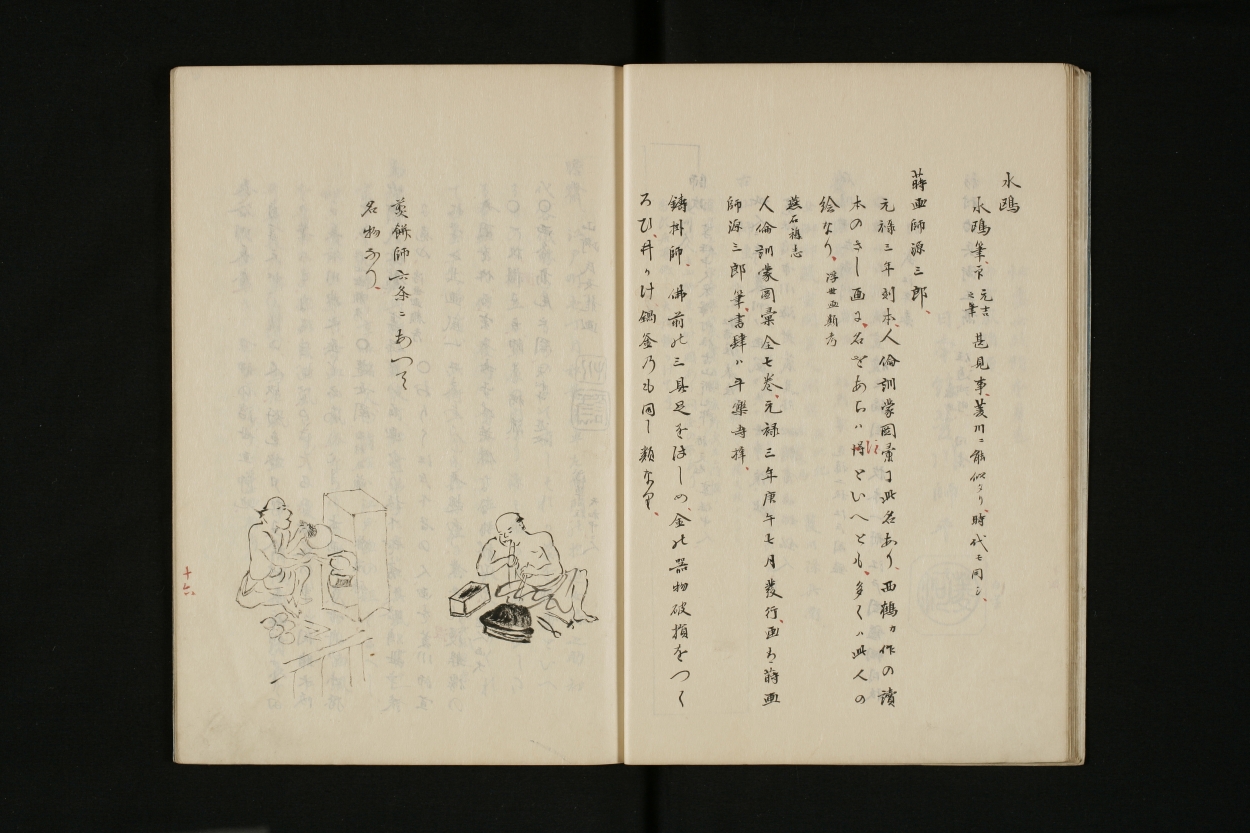 水鴎
水鴎筆、下 元吉之筆 甚見事、菱川ニ能似たり、時代も同し、
蒔画師源三郎、
元禄三年刻本、人倫訓蒙図彙に此名あり、西鶴カ作の読
本のさし画に、名をあらハさすといへとも、多くハ此人の
絵なり、浮世画類考
燕石雑志
人倫訓蒙図彙全七巻、元禄三年庚午七月発行、画ハ蒔画
師源三郎筆、書肆ハ平楽寺梓、
鋳掛師、佛前の三具足をはしめ、金の器物破損をつく
ろひ、丼かけ鍋釜乃も同し類なり、
煎餅師六条ニあつて
名物なり、
十六